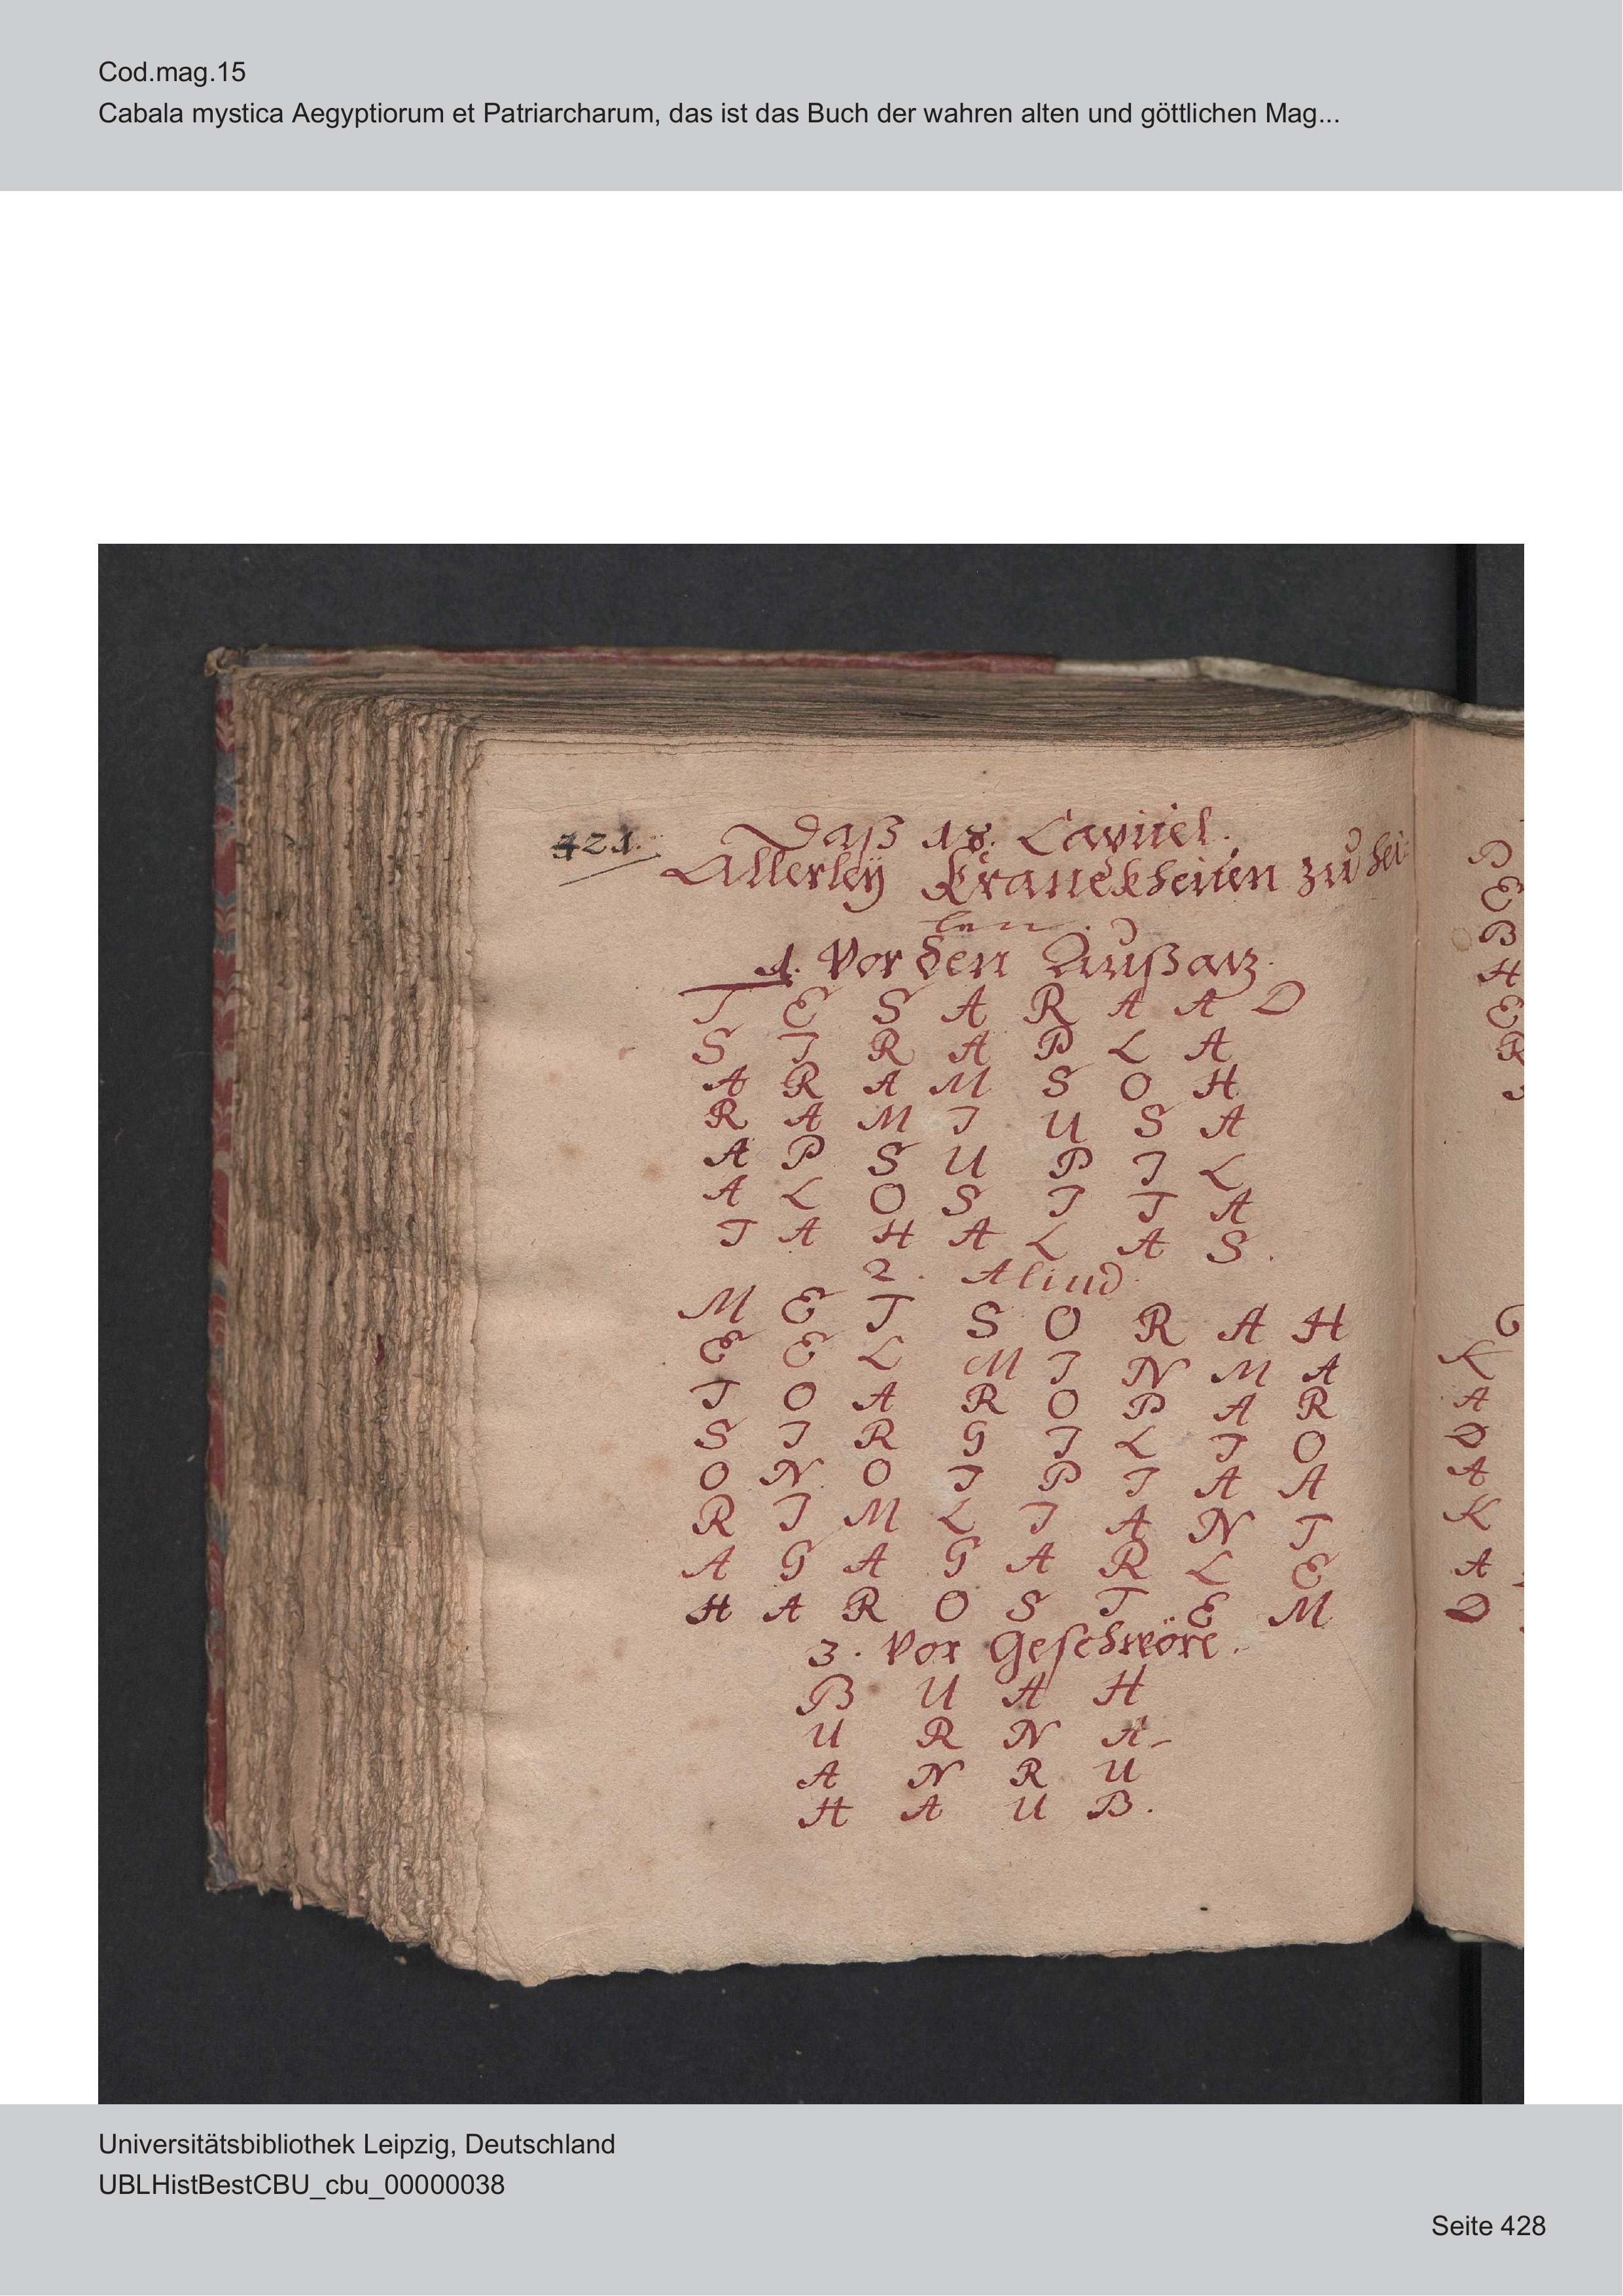 Cod.mag.15
Cabala mystica Aegyptiorum et Patriarcharum, das ist das Buch der wahren alten und göttlichen Mag...
421.
Daß 18. Capitel.
Allerleÿ Kranckheiten zu hei-
len.
1. Vor den Außatz.
T E S A R A A D
S I R A P L A
A R A M S O H
R A M I U S A
A P S U P I L
A L O S I T A
T A H A L A S.
2. Aliud.
M E T S O R A H
E E L M I N M A
T O A R O P A R
S I R G I L T O
O N O I P I A A
R I M L I A N T
A G A G A R L E
H A R O S T E M
3. Vor Geschwöre.
B U A H
U R N A
A N R U
H A U B.
B
E
B
H
E
R
K
A
D
A
K
A
D
Universitätsbibliothek Leipzig, Deutschland
UBLHistBestCBU_cbu_00000038
Seite 428